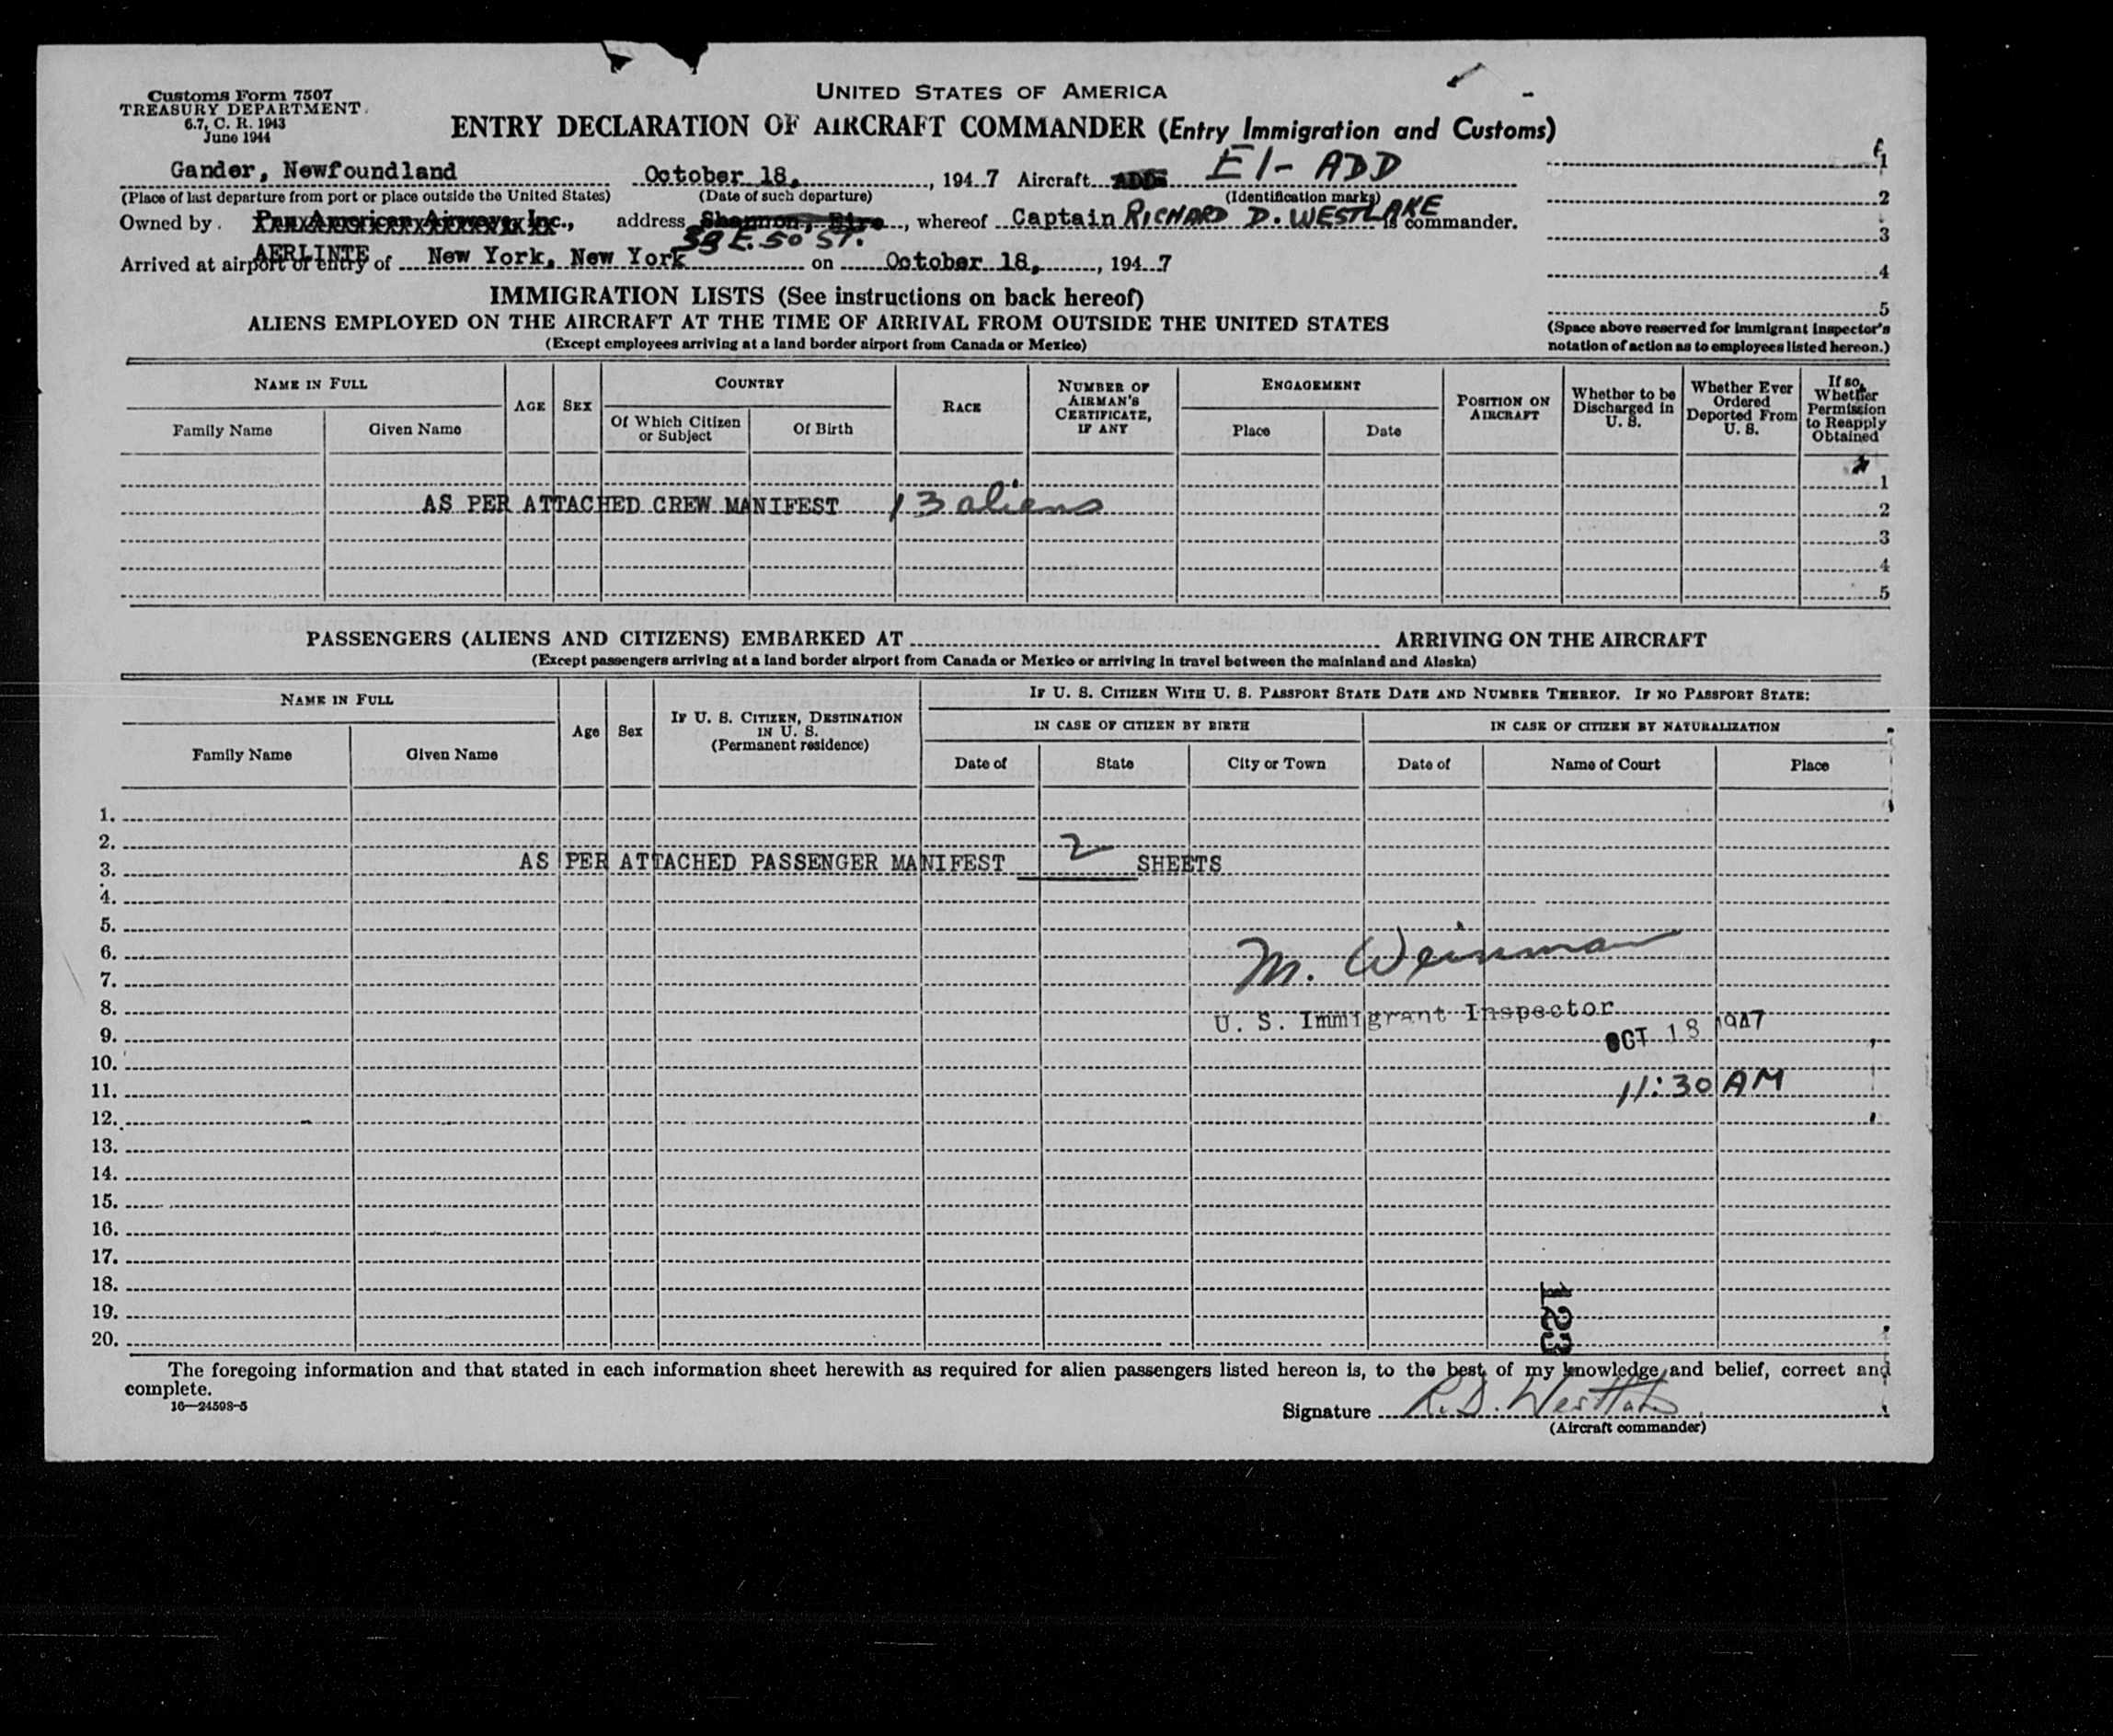 Customs Form 7507
TREASURY DEPARTMENT
6.7, C. R. 1943
June 1944
UNITED STATES OF AMERICA
ENTRY DECLARATION OF AIRCRAFT COMMANDER (Entry Immigration and Customs)
Gander, Newfoundland October 18, , 194 7 Aircraft EI-ADD
(Place of last departure from port or place outside the United States) (Date of such departure) (Identification marks)
Owned by Pan American Airways, Inc., address Shannon, Eire, whereof Captain RICHARD D. WESTLAKE is commander.
AERLINTE 39 E. 50 ST.
Arrived at airport of entry of New York, New York on October 18, , 194 7
1
2
3
4
5
(Space above reserved for Immigrant Inspector's notation of action as to employees listed hereon.)
IMMIGRATION LISTS (See instructions on back hereof)
ALIENS EMPLOYED ON THE AIRCRAFT AT THE TIME OF ARRIVAL FROM OUTSIDE THE UNITED STATES
(Except employees arriving at a land border airport from Canada or Mexico)
NAME IN FULL
Family Name Given Name
AGE
SEX
COUNTRY
Of Which Citizen or Subject Of Birth
RACE
NUMBER OF AIRMAN'S CERTIFICATE, IF ANY
ENGAGEMENT
Place Date
POSITION ON AIRCRAFT
Whether to be Discharged in U. S.
Whether Ever Ordered Deported From U. S.
If so, Whether Permission to Reapply Obtained
1
AS PER ATTACHED CREW MANIFEST 13 aliens 2
3
4
5
PASSENGERS (ALIENS AND CITIZENS) EMBARKED AT ARRIVING ON THE AIRCRAFT
(Except passengers arriving at a land border airport from Canada or Mexico or arriving in travel between the mainland and Alaska)
NAME IN FULL
Family Name Given Name
Age
Sex
IF U. S. CITIZEN, DESTINATION IN U. S.
(Permanent residence)
IF U. S. CITIZEN WITH U. S. PASSPORT STATE DATE AND NUMBER THEREOF. IF NO PASSPORT STATE:
IN CASE OF CITIZEN BY BIRTH IN CASE OF CITIZEN BY NATURALIZATION
Date of State City or Town Date of Name of Court Place
1.
2.
3. AS PER ATTACHED PASSENGER MANIFEST 2 SHEETS
4.
5.
6. M. Weinman
7.
8. U. S. Immigrant Inspector
9. OCT 18 1947
10.
11. 11:30 AM
12.
13.
14.
15.
16.
17.
18.
19.
20.
123
The foregoing information and that stated in each information sheet herewith as required for alien passengers listed hereon is, to the best of my knowledge and belief, correct and
complete.
16—24598-5
Signature R.D. Westlake
(Aircraft commander)